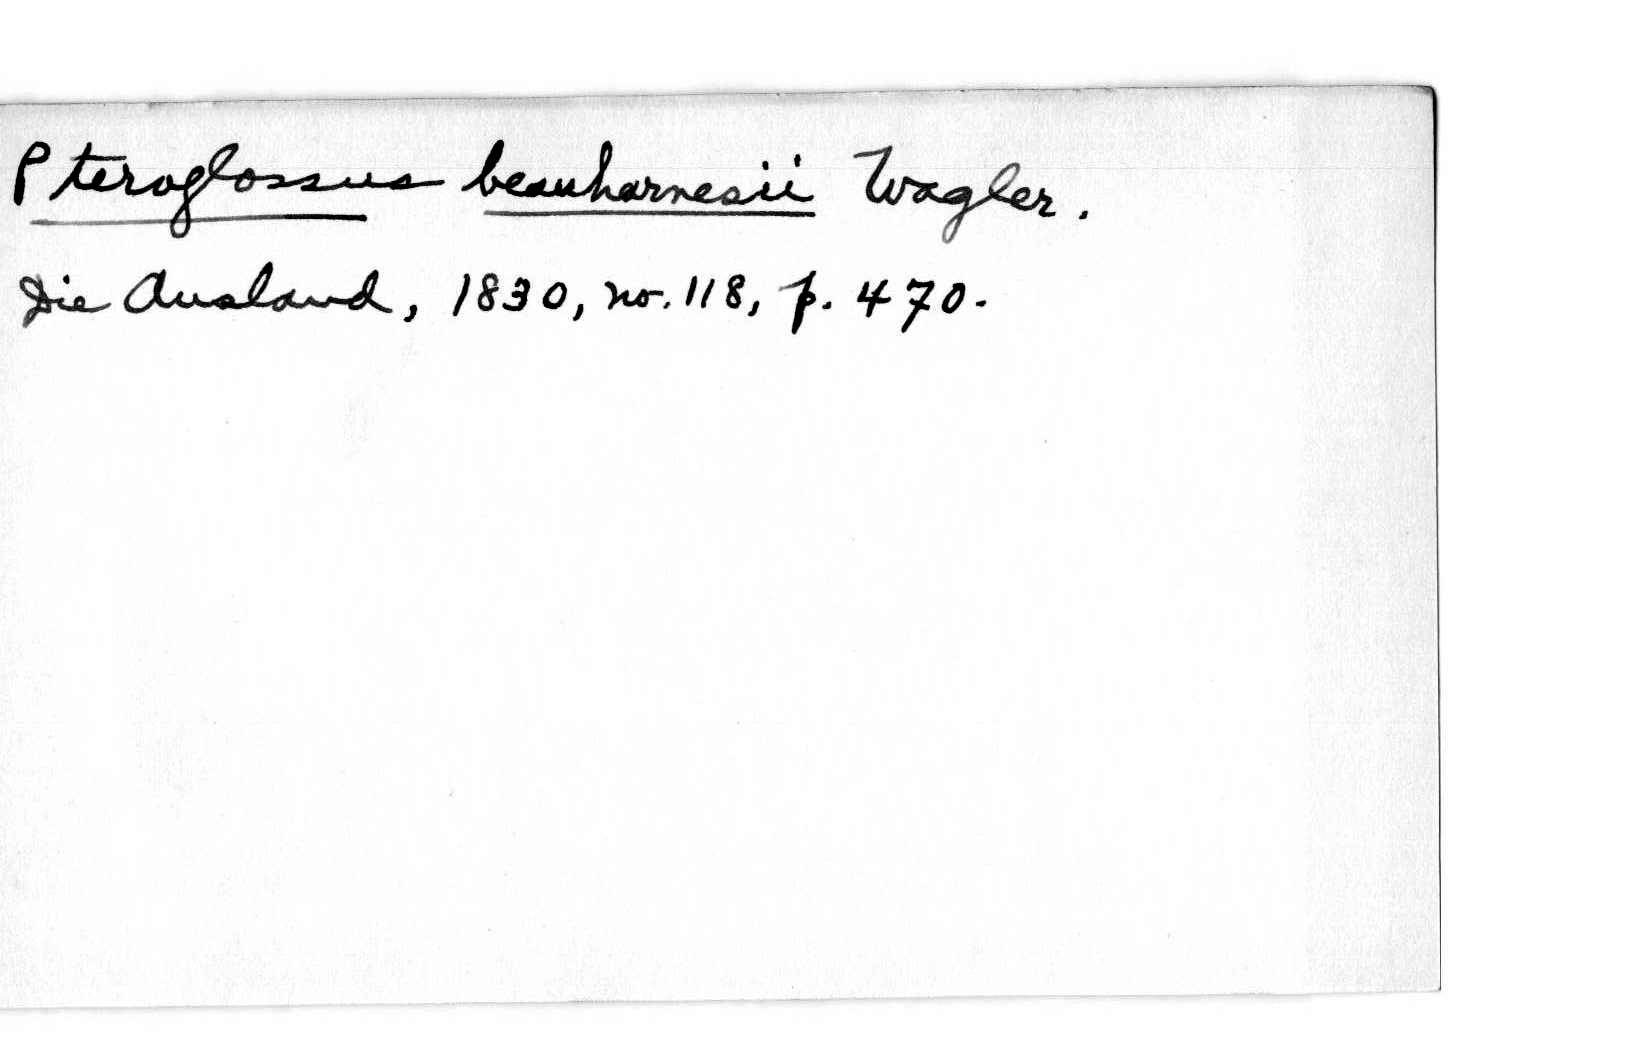 Pteroglossus beauharnesii Wagler.
Die Ausland, 1830, no. 118, p. 470.